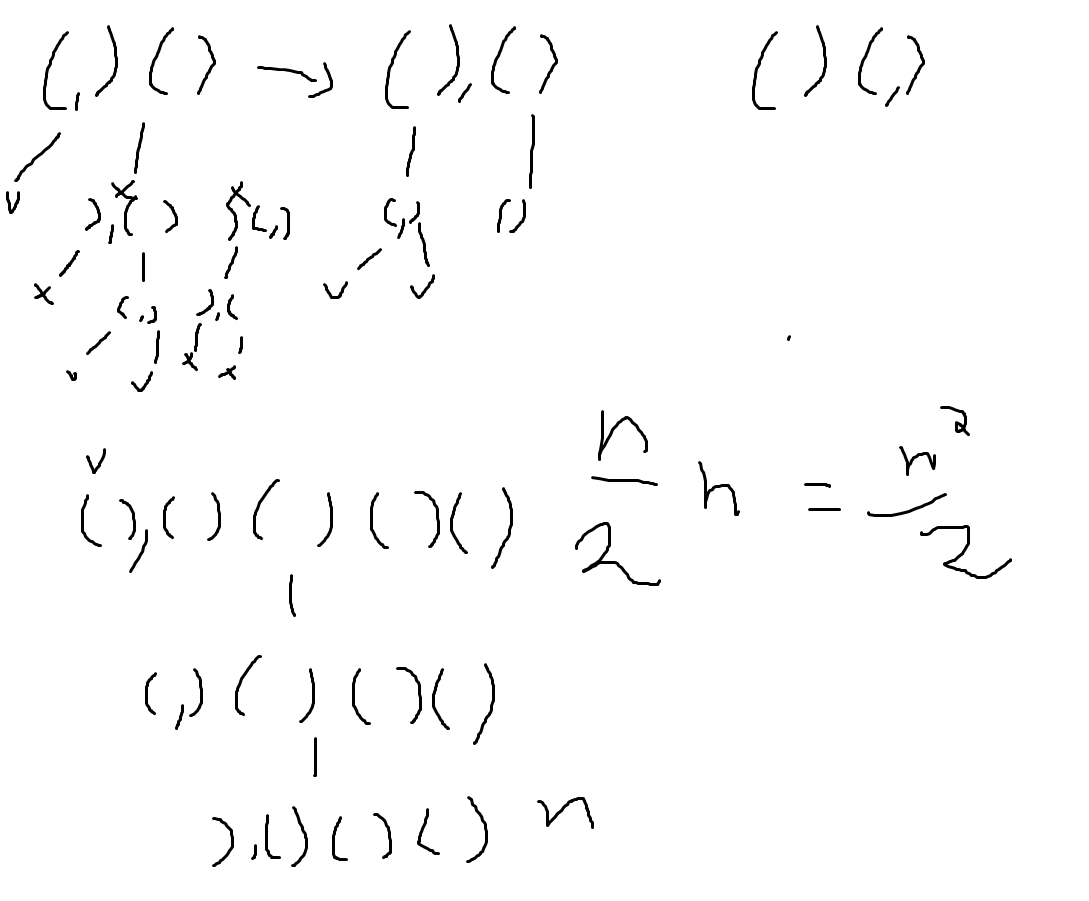 (,)() → (),() ()(,)
v x x
),() )(,) (,) ()
x (,) ),( v v
v v x x
v
(),()()()() n/2 n = n²/2
(,)()()()
),()()() n